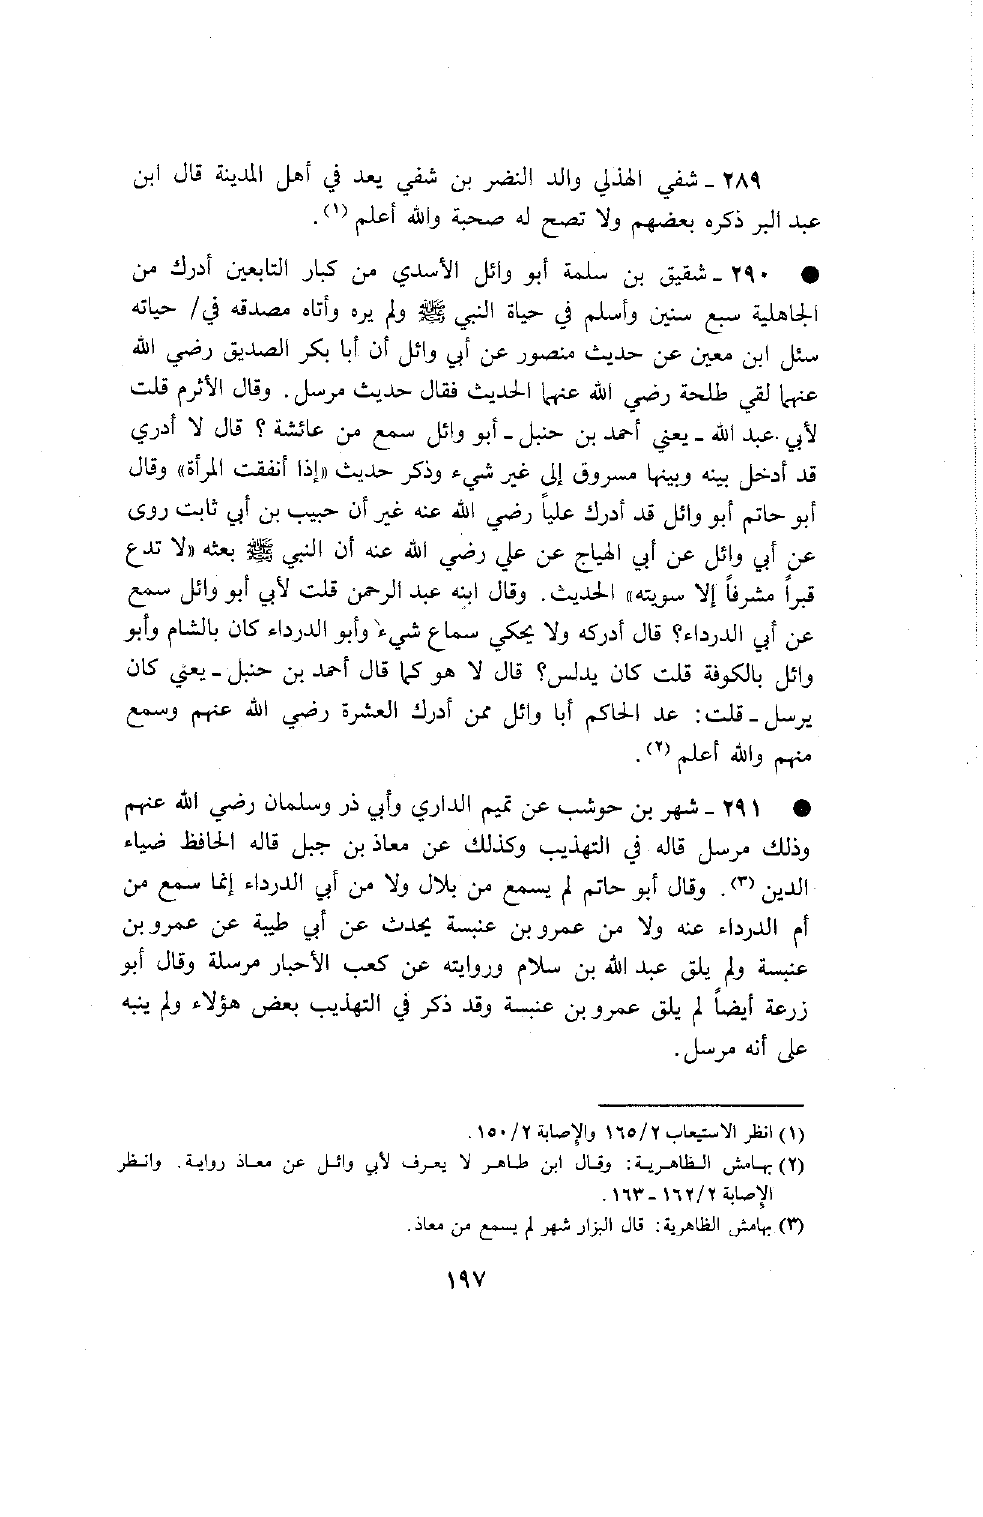 ٢٨٩ ـ شفي الهذلي والد النضر بن شفي يعد في أهل المدينة قال ابن
عبد البر ذكره بعضهم ولا تصح له صحبة والله أعلم (١).
● ٢٩٠ ـ شقيق بن سلمة أبو وائل الأسدي من كبار التابعين أدرك من
الجاهلية سبع سنين وأسلم في حياة النبي ﷺ ولم يره وأتاه مصدقه في/ حياته
سئل ابن معين عن حديث منصور عن أبي وائل أن أبا بكر الصديق رضي الله
عنهما لقي طلحة رضي الله عنهما الحديث فقال حديث مرسل. وقال الأثرم قلت
لأبي عبد الله ـ يعني أحمد بن حنبل ـ أبو وائل سمع من عائشة ؟ قال لا أدري
قد أدخل بينه وبينها مسروق إلى غير شيء وذكر حديث «إذا أنفقت المرأة» وقال
أبو حاتم أبو وائل قد أدرك علياً رضي الله عنه غير أن حبيب بن أبي ثابت روى
عن أبي وائل عن أبي الهياج عن علي رضي الله عنه أن النبي ﷺ بعثه «لا تدع
قبراً مشرفاً إلا سويته» الحديث. وقال ابنه عبد الرحمن قلت لأبي أبو وائل سمع
عن أبي الدرداء؟ قال أدركه ولا يحكي سماع شيء وأبو الدرداء كان بالشام وأبو
وائل بالكوفة قلت كان يدلس؟ قال لا هو كما قال أحمد بن حنبل ـ يعني كان
يرسل ـ قلت: عد الحاكم أبا وائل ممن أدرك العشرة رضي الله عنهم وسمع
منهم والله أعلم (٢).
● ٢٩١ ـ شهر بن حوشب عن تميم الداري وأبي ذر وسلمان رضي الله عنهم
وذلك مرسل قاله في التهذيب وكذلك عن معاذ بن جبل قاله الحافظ ضياء
الدين (٣). وقال أبو حاتم لم يسمع من بلال ولا من أبي الدرداء إنما سمع من
أم الدرداء عنه ولا من عمرو بن عنبسة يحدث عن أبي طيبة عن عمرو بن
عنبسة ولم يلق عبد الله بن سلام وروايته عن كعب الأحبار مرسلة وقال أبو
زرعة أيضاً لم يلق عمرو بن عنبسة وقد ذكر في التهذيب بعض هؤلاء ولم ينبه
على أنه مرسل.
(١) انظر الاستيعاب ١٦٥/٢ والإصابة ١٥٠/٢.
(٢) بهامش الظاهرية: وقال ابن طاهر لا يعرف لأبي وائل عن معاذ رواية. وانظر
الإصابة ١٦٢/٢ ـ ١٦٣.
(٣) بهامش الظاهرية: قال البزار شهر لم يسمع من معاذ.
١٩٧